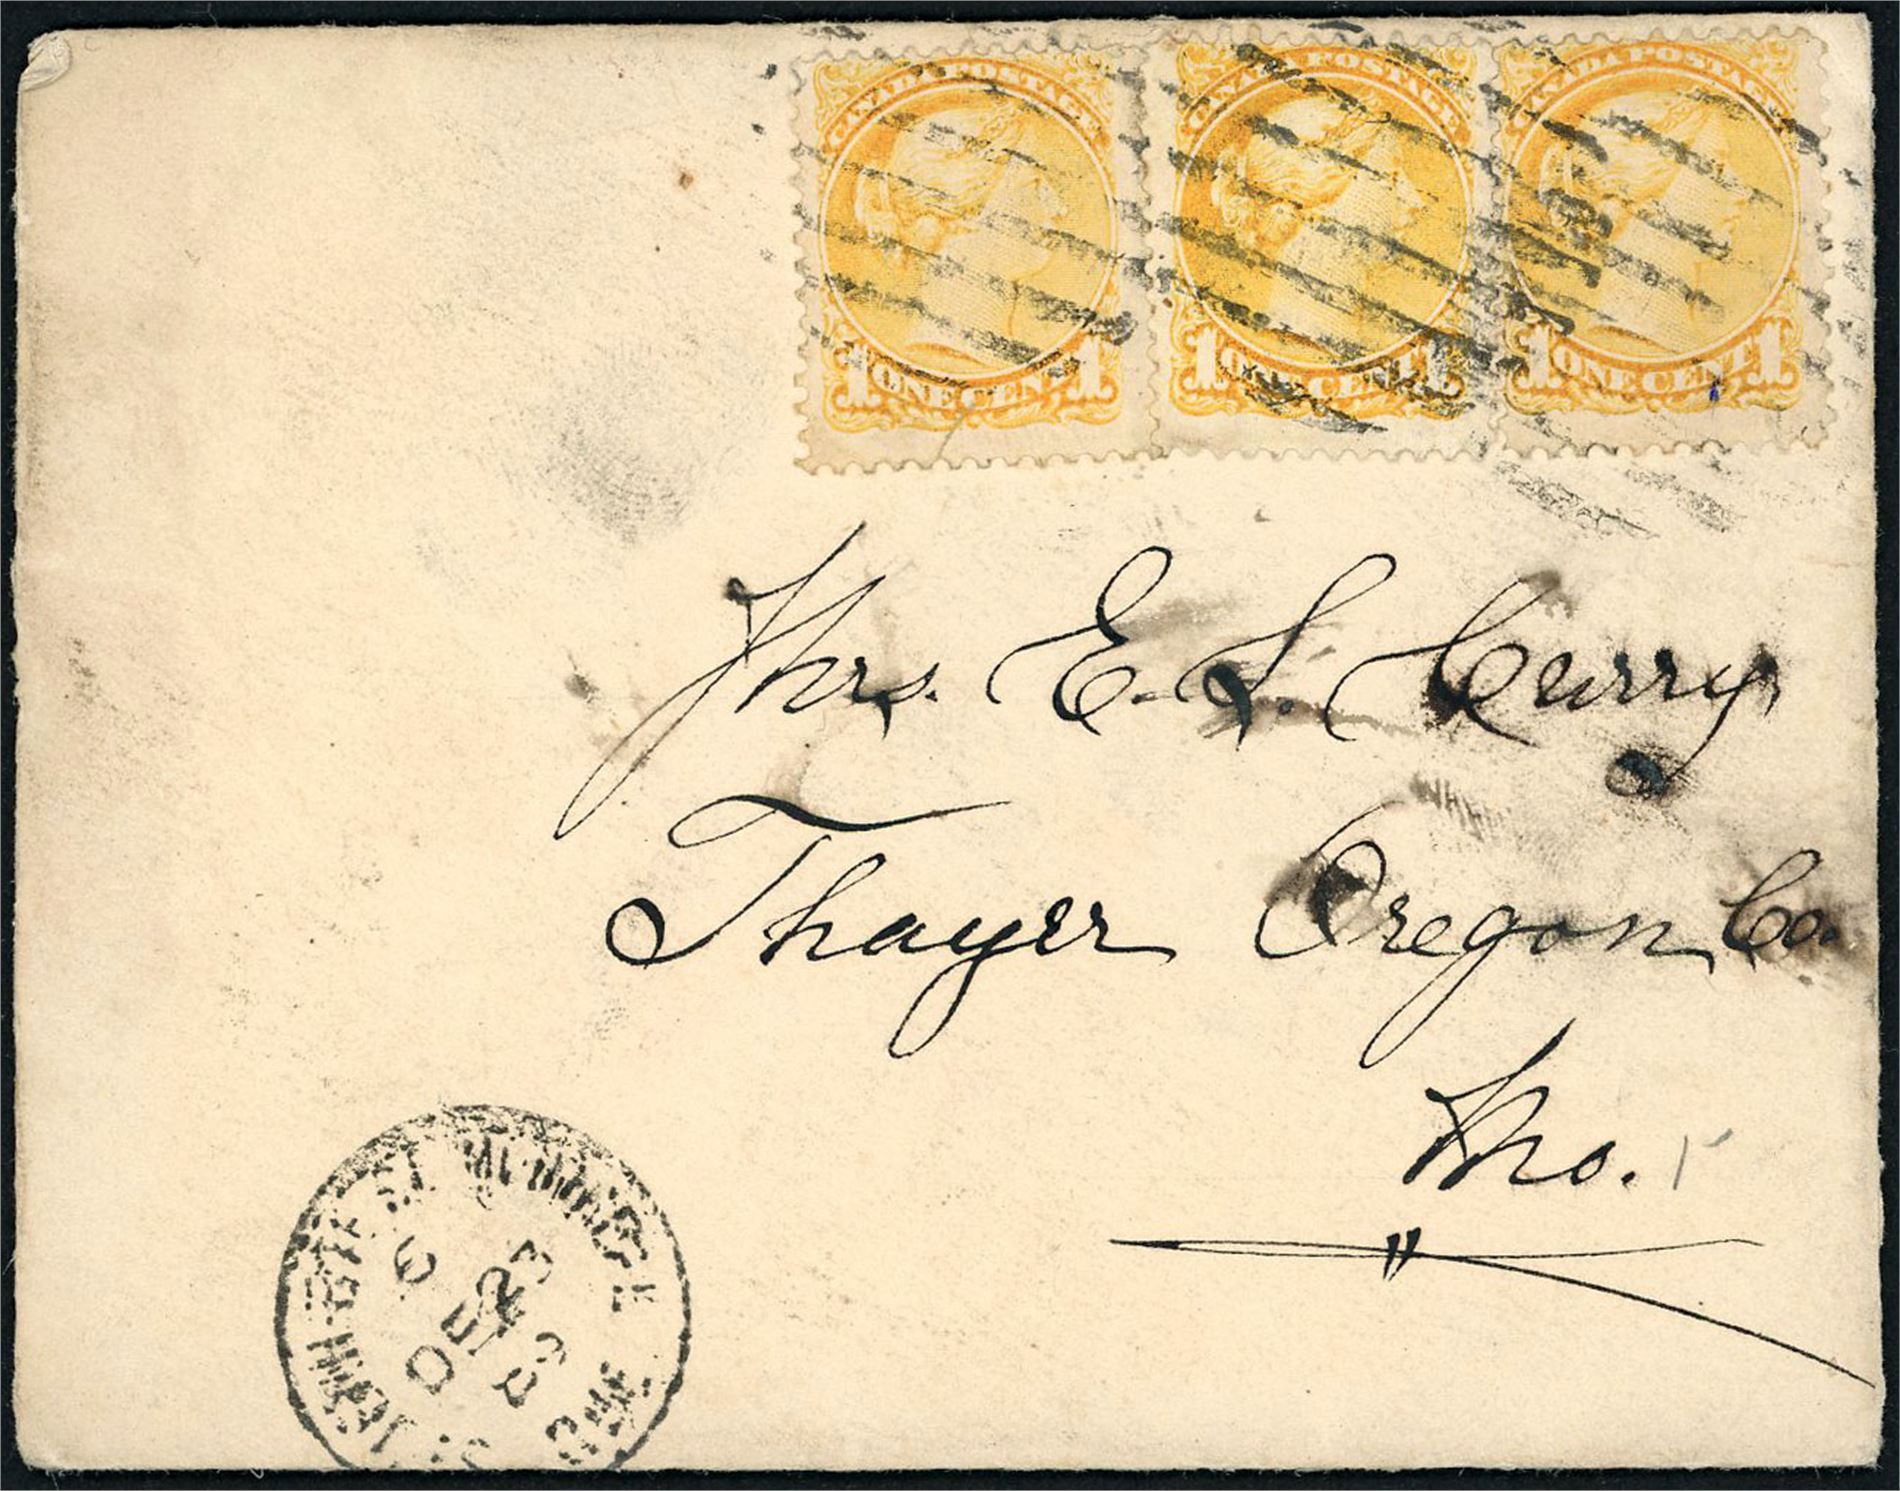 CANADA POSTAGE CANADA POSTAGE CANADA POSTAGE
1 ONE CENT 1 1 ONE CENT 1 1 ONE CENT 1
Mrs. E. L. Curry
Thayer Oregon Co.
Mo.
DE 23